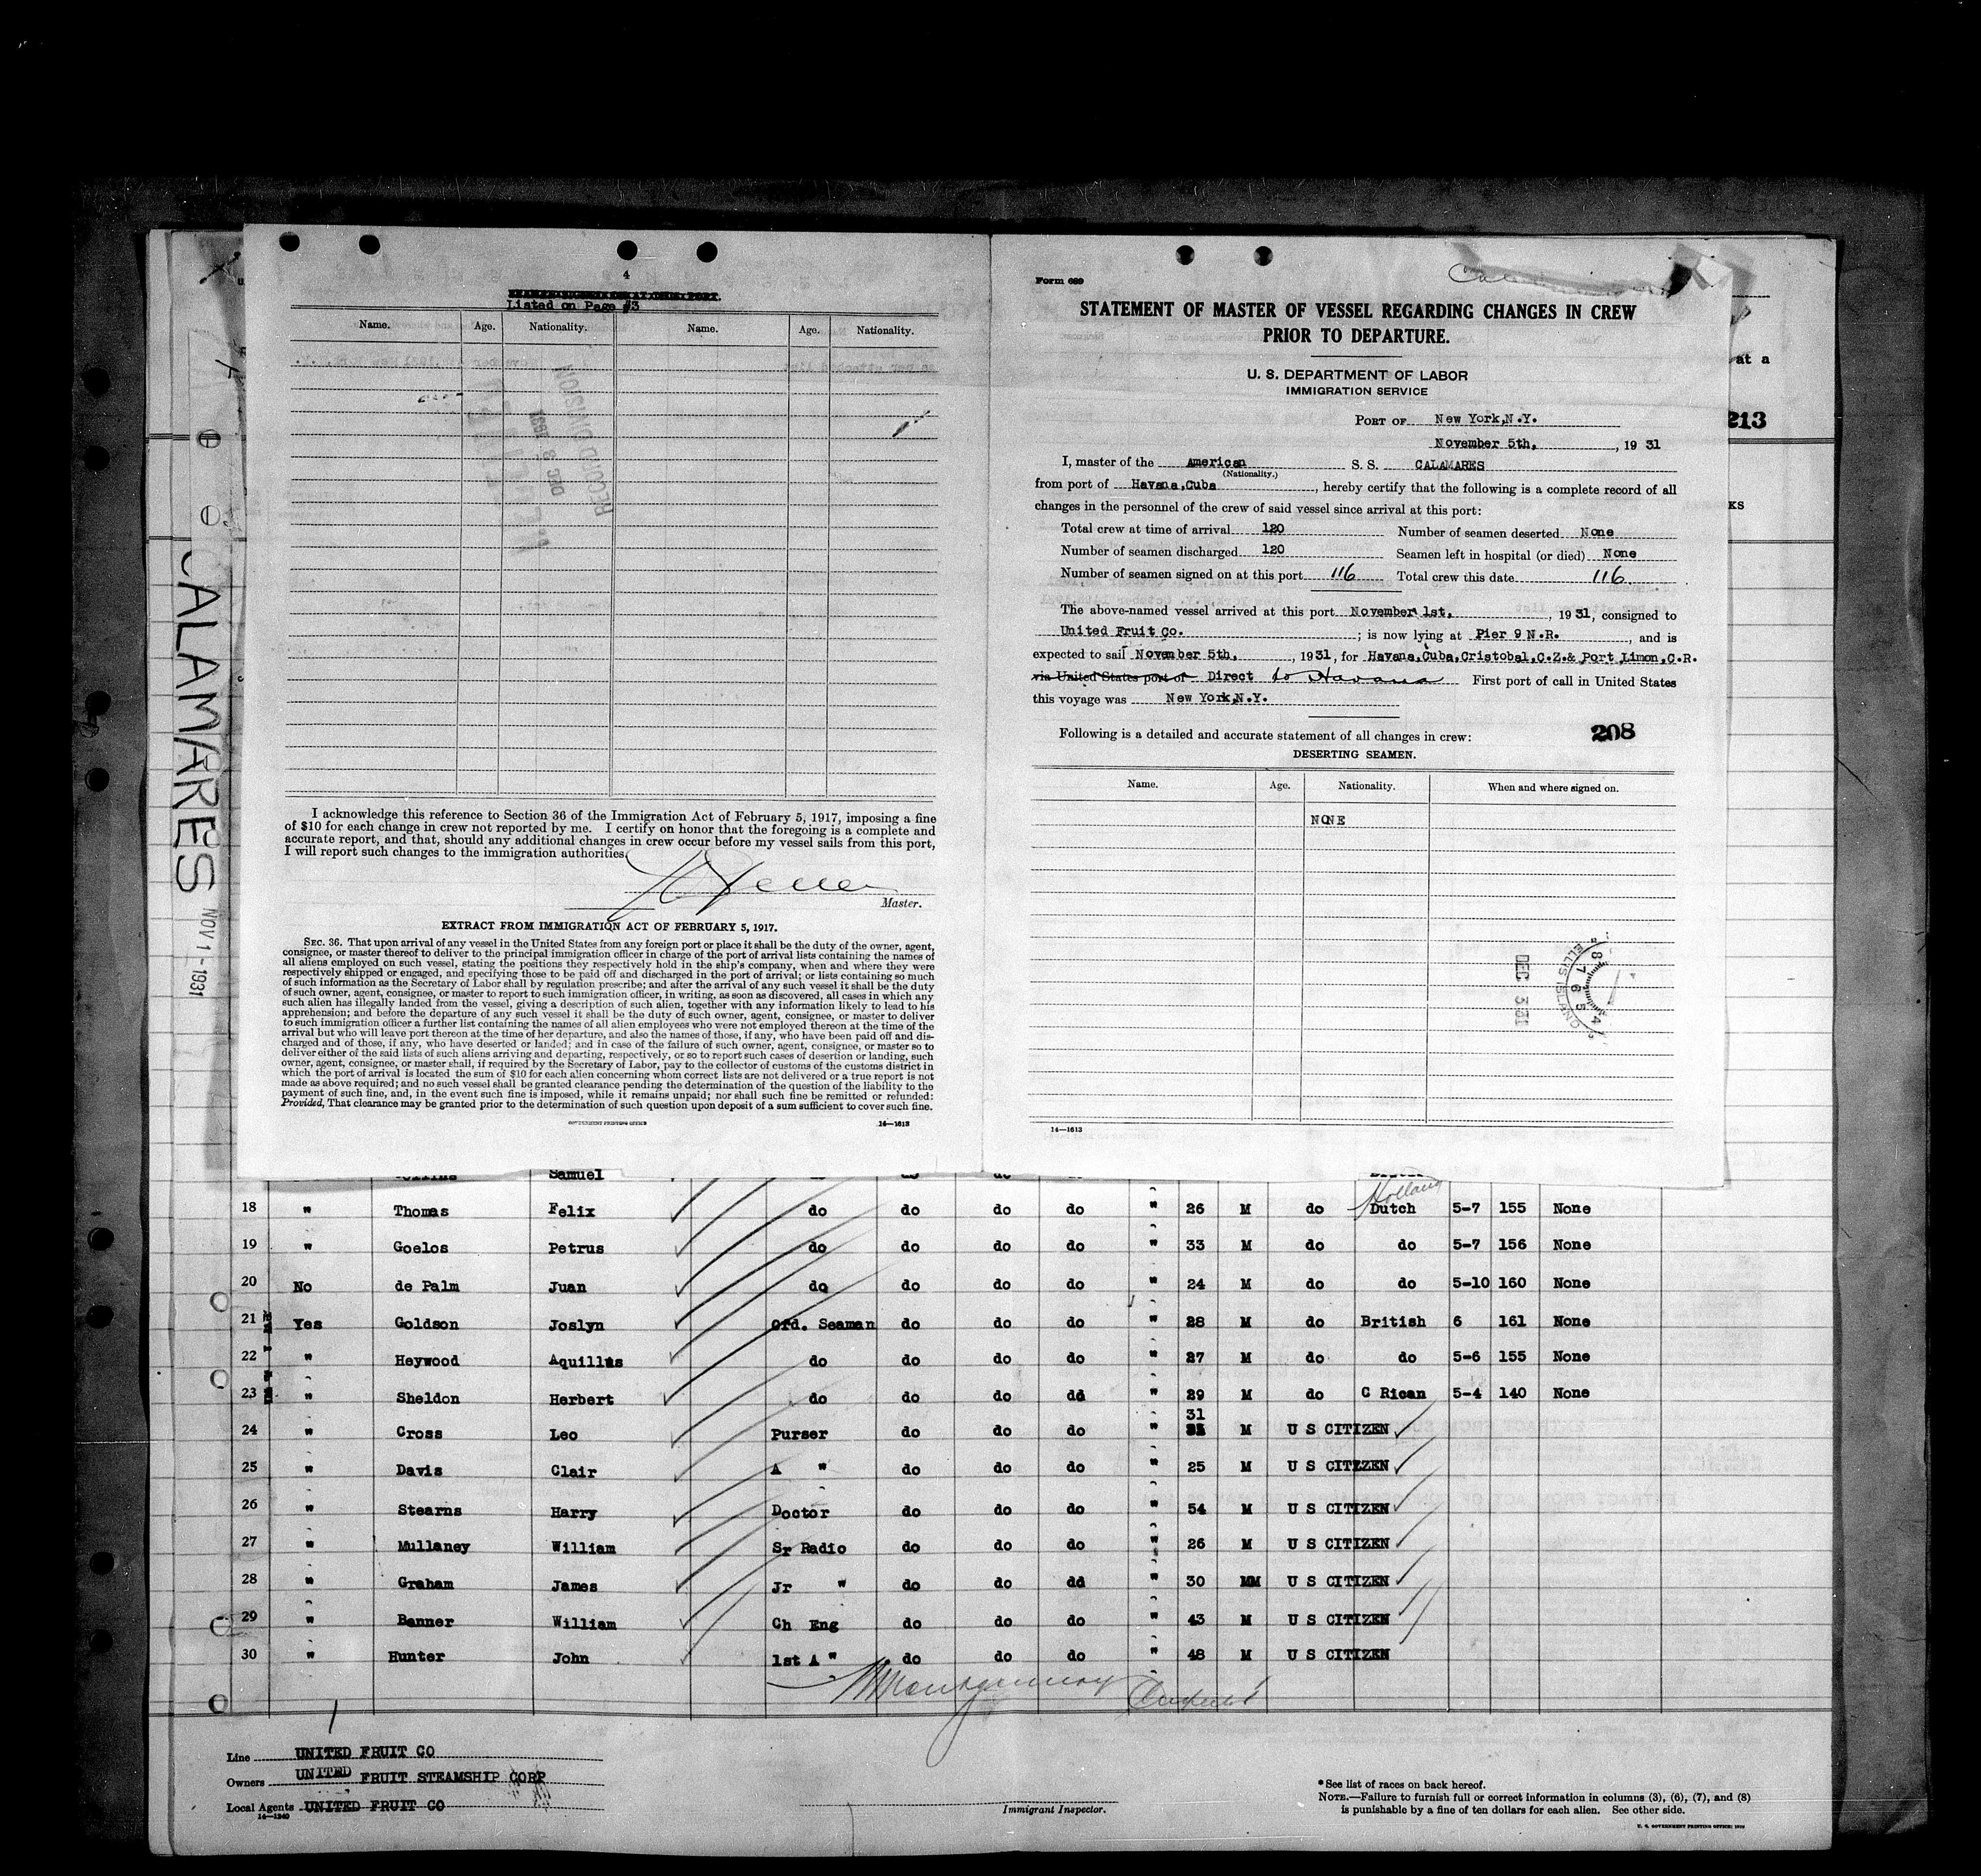 4
Listed on Page #3
Name. Age. Nationality. Name. Age. Nationality.
RECORD DIVISION
DEC 8 1931
I acknowledge this reference to Section 36 of the Immigration Act of February 5, 1917, imposing a fine
of $10 for each change in crew not reported by me. I certify on honor that the foregoing is a complete and
accurate report, and that, should any additional changes in crew occur before my vessel sails from this port,
I will report such changes to the immigration authorities.
Master.
EXTRACT FROM IMMIGRATION ACT OF FEBRUARY 5, 1917.
SEC. 36. That upon arrival of any vessel in the United States from any foreign port or place it shall be the duty of the owner, agent,
consignee, or master thereof to deliver to the principal immigration officer in charge of the port of arrival lists containing the names of
all aliens employed on such vessel, stating the positions they respectively hold in the ship's company, when and where they were
respectively shipped or engaged, and specifying those to be paid off and discharged in the port of arrival; or lists containing so much
of such information as the Secretary of Labor shall by regulation prescribe; and after the arrival of any such vessel it shall be the duty
of such owner, agent, consignee, or master to report to such immigration officer, in writing, as soon as discovered, all cases in which any
such alien has illegally landed from the vessel, giving a description of such alien, together with any information likely to lead to his
apprehension; and before the departure of any such vessel it shall be the duty of such owner, agent, consignee, or master to deliver
to such immigration officer a further list containing the names of all alien employees who were not employed thereon at the time of the
arrival but who will leave port thereon at the time of her departure, and also the names of those, if any, who have been paid off and dis-
charged and of those, if any, who have deserted or landed; and in case of the failure of such owner, agent, consignee, or master so to
deliver either of the said lists of such aliens arriving and departing, respectively, or so to report such cases of desertion or landing, such
owner, agent, consignee, or master shall, if required by the Secretary of Labor, pay to the collector of customs of the customs district in
which the port of arrival is located the sum of $10 for each alien concerning whom correct lists are not delivered or a true report is not
made as above required; and no such vessel shall be granted clearance pending the determination of the question of the liability to the
payment of such fine, and, in the event such fine is imposed, while it remains unpaid; nor shall such fine be remitted or refunded:
Provided, That clearance may be granted prior to the determination of such question upon deposit of a sum sufficient to cover such fine.
GOVERNMENT PRINTING OFFICE 14—1613
Form 689
STATEMENT OF MASTER OF VESSEL REGARDING CHANGES IN CREW
PRIOR TO DEPARTURE.
U. S. DEPARTMENT OF LABOR
IMMIGRATION SERVICE
PORT OF New York,N.Y.
November 5th, , 19 31
I, master of the American S. S. CALAMARES
(Nationality.)
from port of Havana,Cuba , hereby certify that the following is a complete record of all
changes in the personnel of the crew of said vessel since arrival at this port:
Total crew at time of arrival 120 Number of seamen deserted None
Number of seamen discharged 120 Seamen left in hospital (or died) None
Number of seamen signed on at this port 116 Total crew this date 116
The above-named vessel arrived at this port November 1st, , 19 31, consigned to
United Fruit Co. ; is now lying at Pier 9 N.R. , and is
expected to sail November 5th, , 1931, for Havana,Cuba,Cristobal,C.Z.& Port Limon,C.R.
via United States port of Direct to Havana First port of call in United States
this voyage was New York,N.Y.
Following is a detailed and accurate statement of all changes in crew: 208
DESERTING SEAMEN.
Name. Age. Nationality. When and where signed on.
NONE
DEC 3 31
ELLIS ISLAND
14—1613
at a
213
KS
CALAMARES NOV 1 - 1931
Collins Samuel
Holland
18 " Thomas Felix do do do do " 26 M do Dutch 5-7 155 None
19 " Goelos Petrus do do do do " 33 M do do 5-7 156 None
20 No de Palm Juan do do do do " 24 M do do 5-10 160 None
21 Yes Goldson Joslyn Ord. Seaman do do do " 28 M do British 6 161 None
22 " Heywood Aquillus do do do do " 27 M do do 5-6 155 None
23 " Sheldon Herbert do do do do " 29 M do C Rican 5-4 140 None
24 " Cross Leo Purser do do do " 31 M U S CITIZEN
25 " Davis Clair A " do do do " 25 M U S CITIZEN
26 " Stearns Harry Doctor do do do " 54 M U S CITIZEN
27 " Mullaney William Sr Radio do do do " 26 M U S CITIZEN
28 " Graham James Jr " do do dd " 30 MM U S CITIZEN
29 " Banner William Ch Eng do do do " 43 M U S CITIZEN
30 " Hunter John 1st A " do do do " 48 M U S CITIZEN
Line UNITED FRUIT CO
Owners UNITED FRUIT STEAMSHIP CORP
Local Agents UNITED FRUIT CO
14—1240
Immigrant Inspector.
*See list of races on back hereof.
NOTE.—Failure to furnish full or correct information in columns (3), (6), (7), and (8)
is punishable by a fine of ten dollars for each alien. See other side.